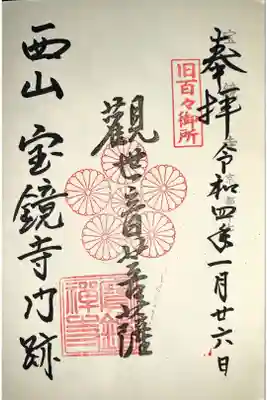 奉拝
令和四年一月廿六日
旧百々御所
觀世音菩薩
西山 宝鏡寺門跡